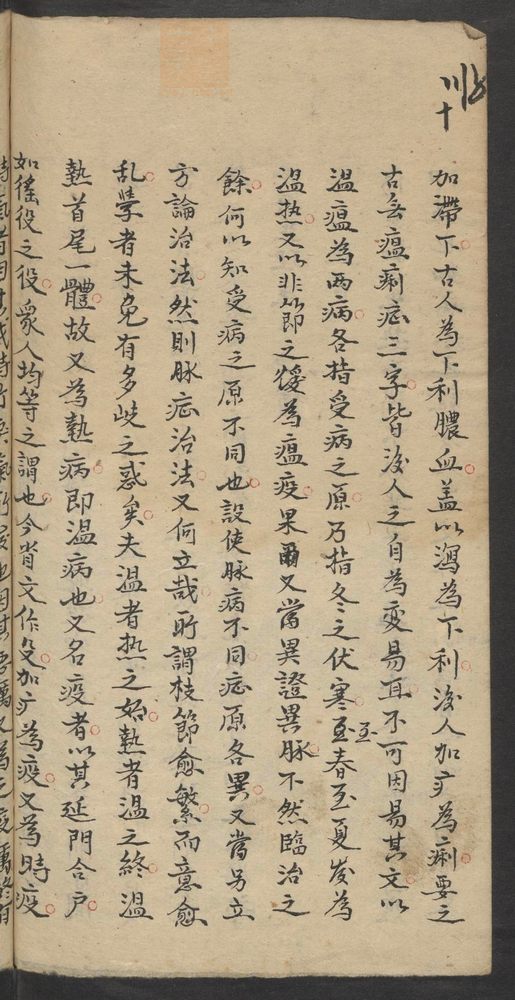 加滯下古人為下利膿血蓋以瀉為下利後人加疒為痢要之
古無瘟痢症三字皆後人之自為變易耳不可因易其文以
温瘟為两病各指受病之原乃指冬之伏寒至春至夏發為
至
温热又以非節之煖為瘟疫果爾又當異證異脉不然臨治之
餘何以知受病之原不同也設使脉病不同症原各異又當另立
方論治法然則脉症治法又何立哉所謂枝節愈繁而意愈
乱學者未免有多岐之惑矣夫温者热之始熱者温之終温
熱首尾一體故又為熱病即温病也又名疫者以其延門合户
如徭役之役衆人均等之謂也今省文作殳加疒為疫又為時疫